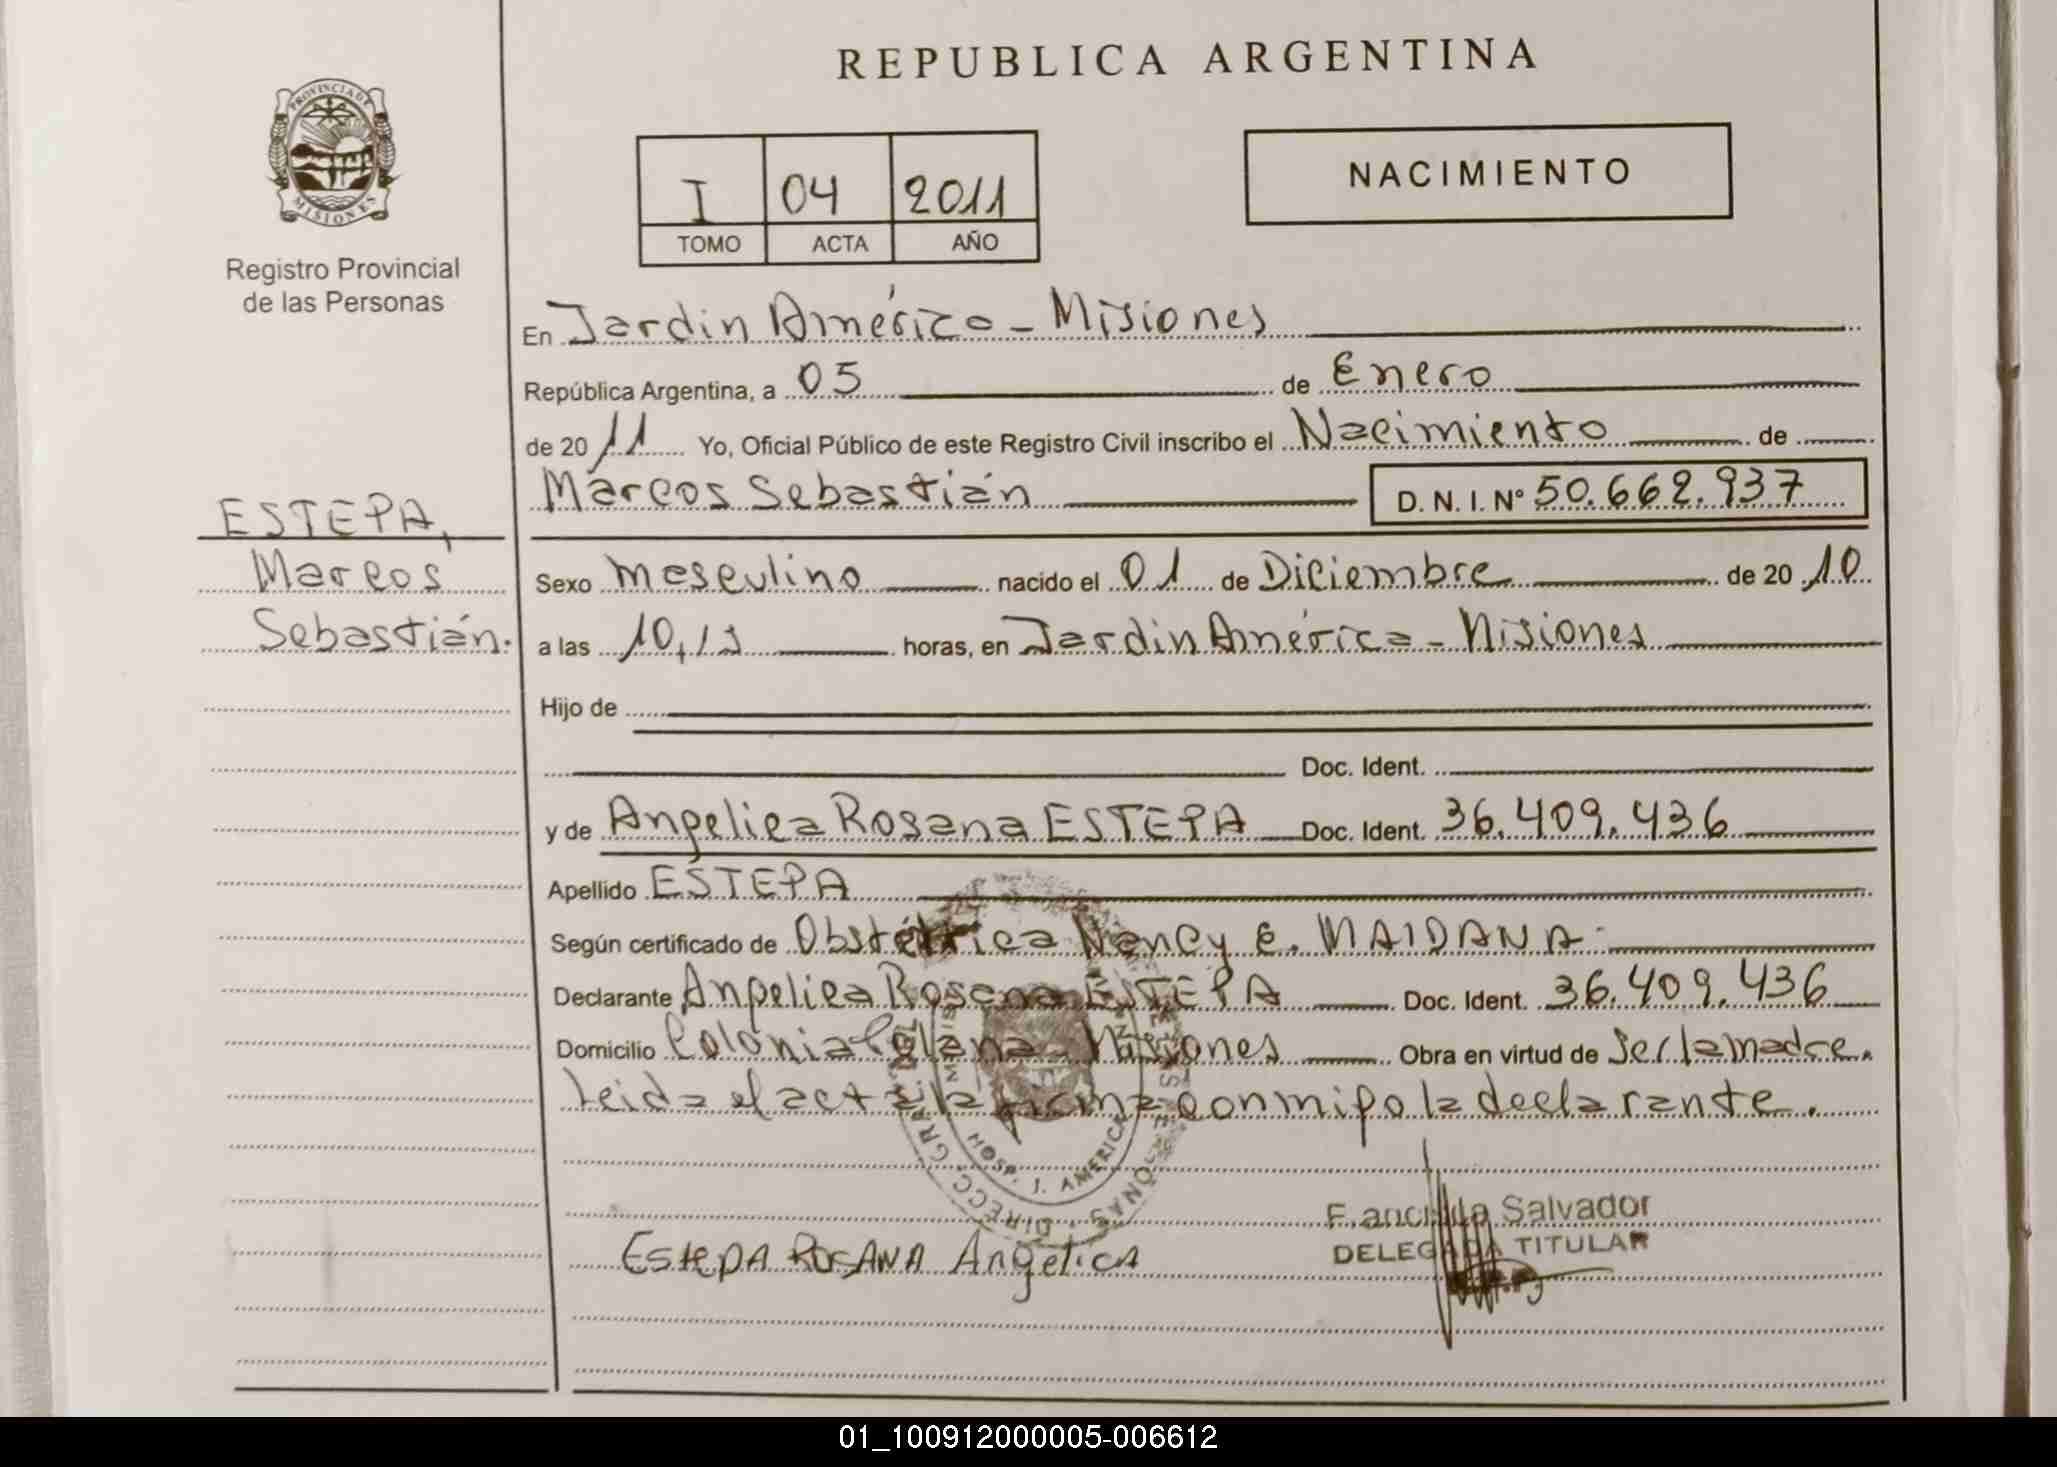 REPUBLICA ARGENTINA
PROVINCIA DE
MISIONES
Registro Provincial
de las Personas
I 04 2011
TOMO ACTA AÑO
NACIMIENTO
En Jardin América - Misiones
República Argentina, a 05 de Enero
de 20 11 Yo, Oficial Público de este Registro Civil inscribo el Nacimiento de
Marcos Sebastián D. N. I. Nº 50.662.937
ESTEPA,
Marcos
Sebastián.
Sexo masculino nacido el 01 de Diciembre de 20 10
a las horas, en Jardin América - Misiones
Hijo de
Doc. Ident.
y de Angelica Rosana ESTEPA Doc. Ident. 36.409.436
Apellido ESTEPA
Según certificado de Obstétrica Nancy E. MAIDANA.
Declarante Angelica Rosana ESTEPA Doc. Ident. 36.409.436
Domicilio Colonia Misiones Obra en virtud de Ser la madre.
Leida el acta la firma conmigo la declarante.
HOSP. J. AMERICA
DIRECC. GRAL.
Salvador
DELEGADA TITULAR
ESTEPA ROSANA Angelica
01_100912000005-006612